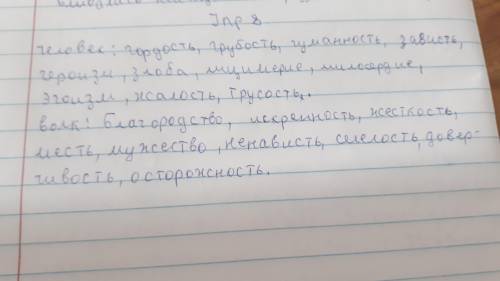 Упр 8
человек: гордость, грубость, гуманность, зависть,
героизм, злоба, лицимерие, милосердие,
эгоизм, жалость, трусость.
волк: благородство, искренность, жесткость,
месть, мужество, ненависть, смелость, довер-
чивость, осторожность.